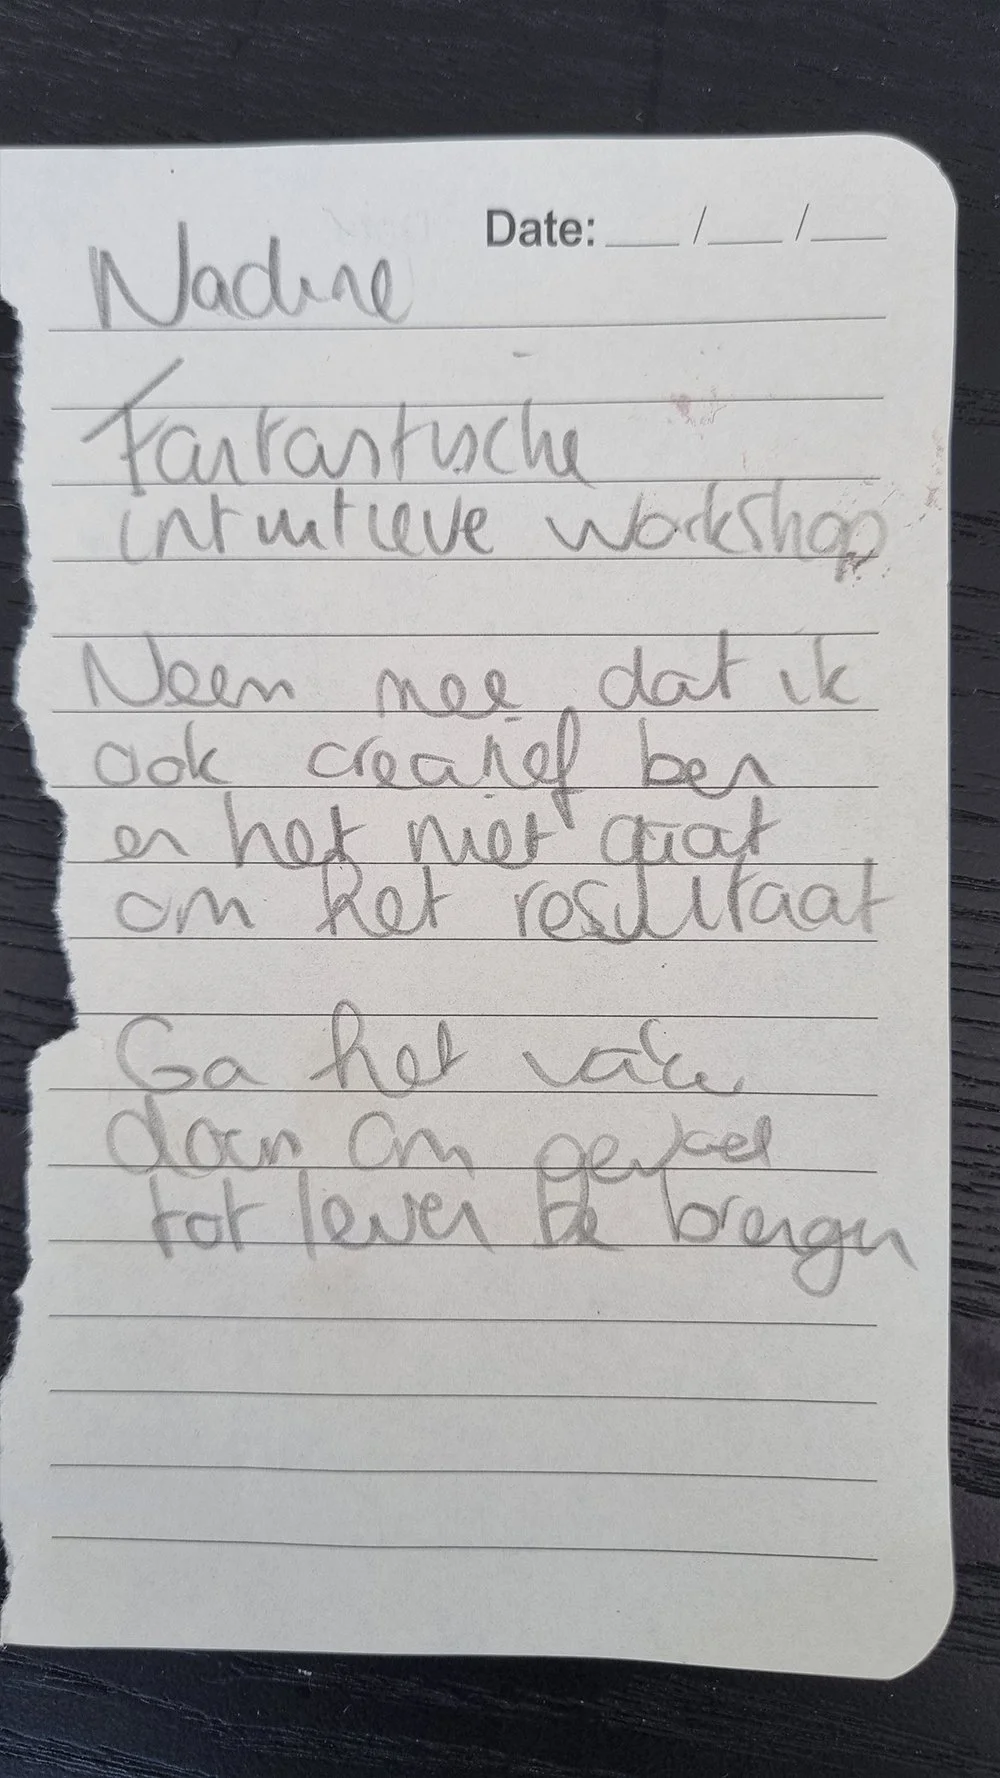 Date: ___ / ___ / ___
Nadine
Fantastische
intuitieve workshop
Neem mee dat ik
ook creatief ben
en het niet gaat
om het resultaat
Ga het vaker
doen om gevoel
tot leven te brengen